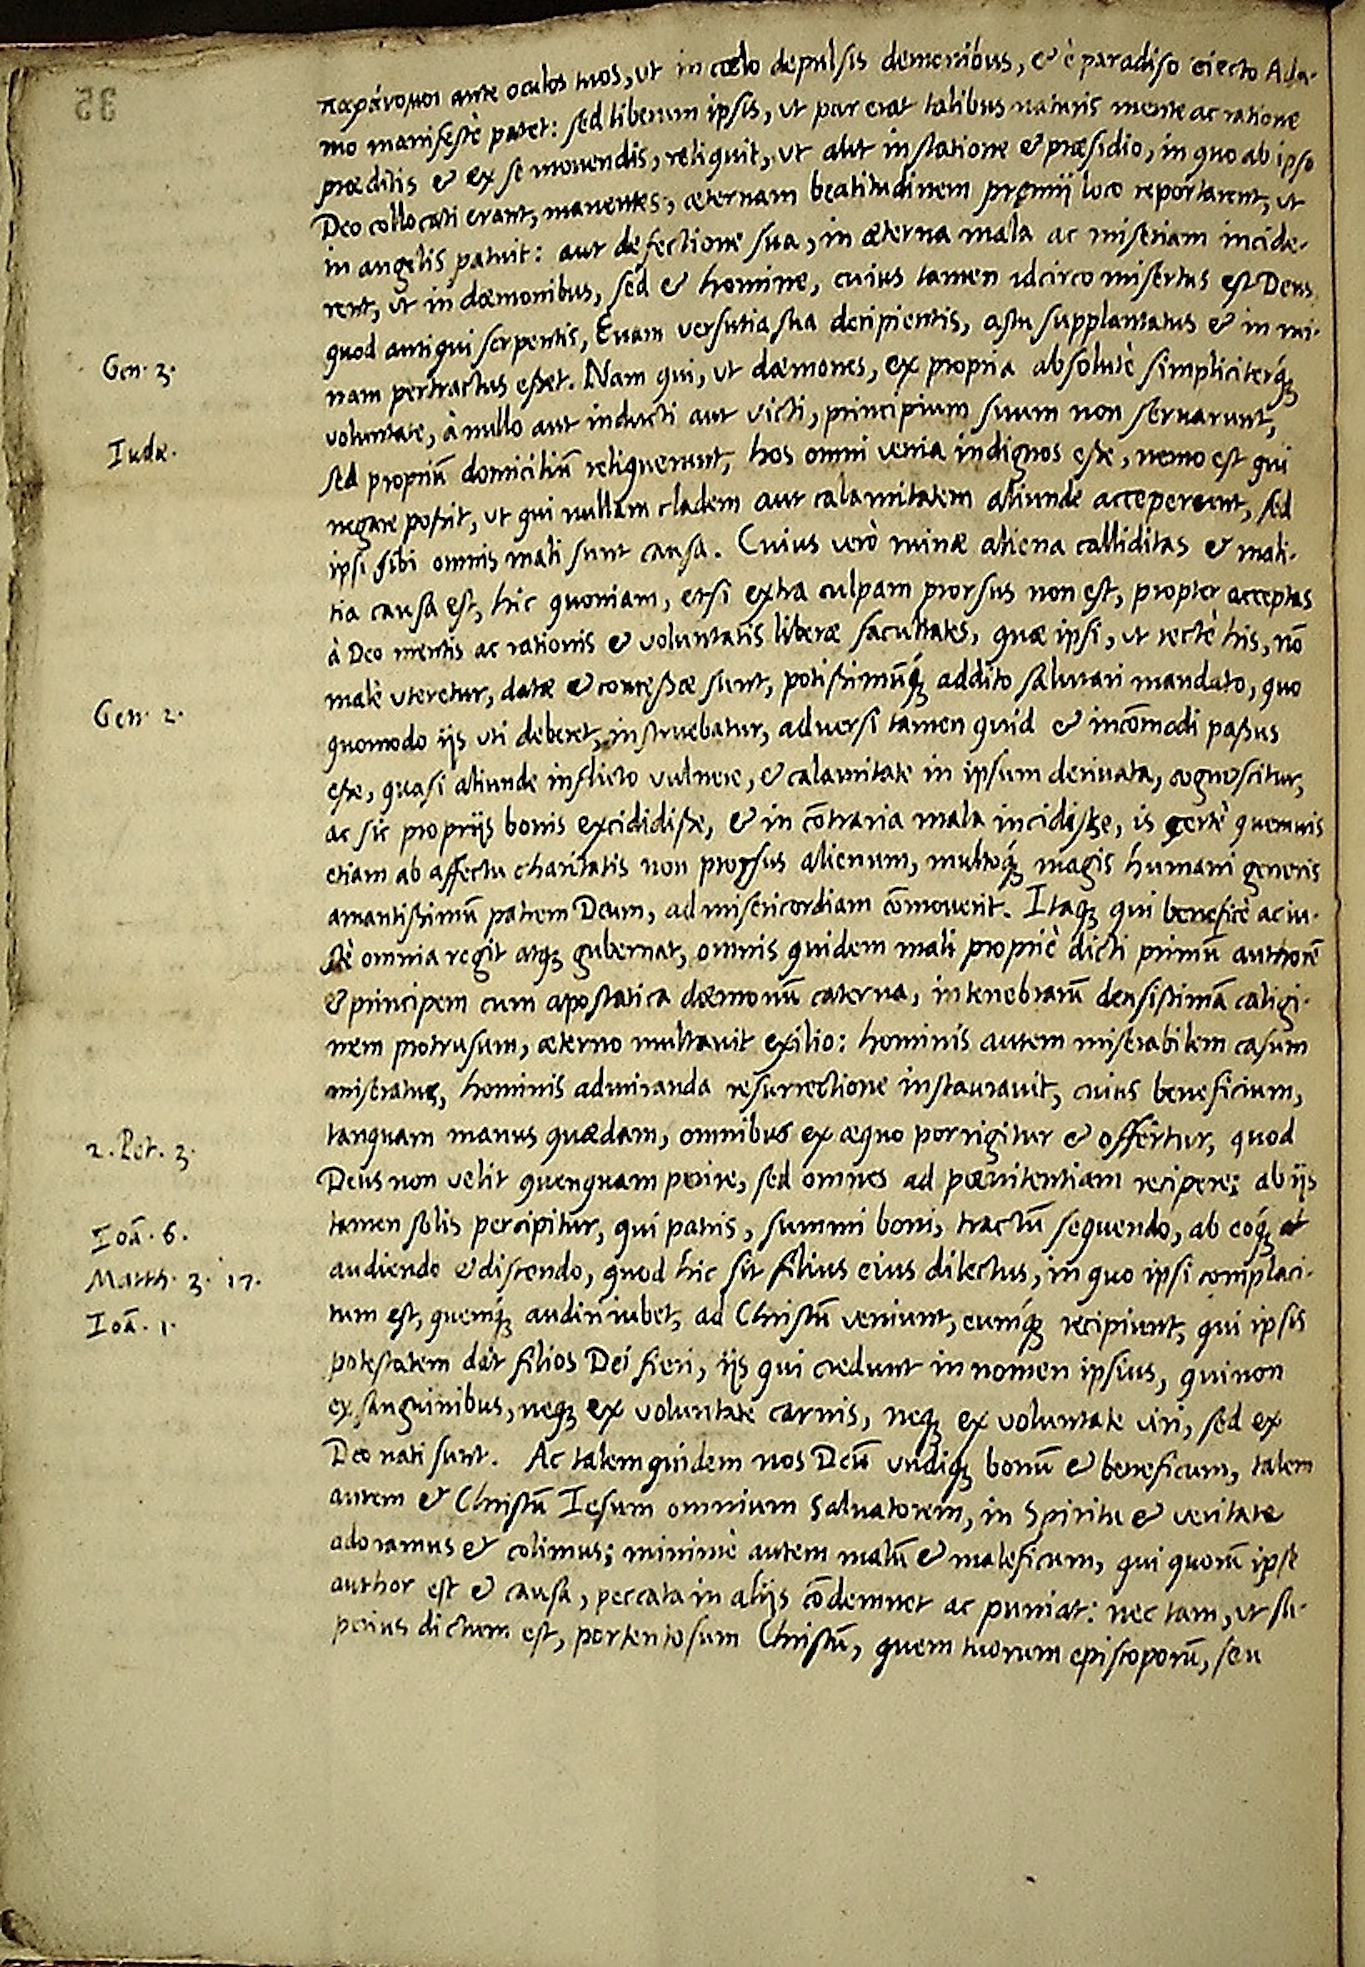 παράνομοι ante oculos tuos, ut in cœlo depulsis demonibus, & è paradiso eiecto Ada-
mo manifestè patet: sed liberum ipsis, ut par erat talibus naturis mente ac ratione
præditis & ex se movendis, reliquit, ut aut in statione & præsidio, in quo ab ipso
Deo collocati erant, manentes, æternam beatitudinem premij loco reportarent, ut
in angelis patuit: aut defectione sua, in æterna mala ac miseriam incide-
rent, ut in dæmonibus, sed & homine, cuius tamen idcirco misertus est Deus,
quod antiqui serpentis, Euam versutia sua decipientis, astu supplantatus & in rui-
Gen. 3. nam pertractus esset. Nam qui, ut dæmones, ex propria absolutè simpliciterq́ꝫ
voluntate, à nullo aut inducti aut victi, principium suum non seruarunt,
Iudæ. sed propriũ domiciliũ reliquerunt, hos omni venia indignos esse, nemo est qui
negare possit, ut qui nullam cladem aut calamitatem aliunde acceperunt, sed
ipsi sibi omnis mali sunt causa. Cuius verò ruinæ aliena calliditas & mali-
tia causa est, hic quoniam, etsi extra culpam prorsus non est, propter acceptas
à Deo mentis ac rationis & voluntatis liberæ facultates, quæ ipsi, ut rectè his, nõ
malè uteretur, datæ & concessæ sunt, potißimũq́ꝫ addito salutari mandato, quo
Gen. 2. quomodo ijs uti deberet, instruebatur, adversi tamen quid & incõmodi paßus
esse, quasi aliunde inflicto vulnere, & calamitate in ipsum derivata, cognoscitur,
ac sic proprijs bonis excidiße, & in cõtraria mala incidiße, is certè quemuis
etiam ab affectu charitatis non prorsus alienum, multoq́ꝫ magis humani generis
amantißimũ patrem Deum, ad misericordiam cõmoverit. Itaqꝫ qui beneficè ac iu-
stè omnia regit atqꝫ gubernat, omnis quidem mali propriè dicti primũ authorẽ
& principem cum apostatica dæmonũ caterva, in tenebrarũ densissimã caligi-
nem protrusum, æterno multavit exilio: hominis autem miserabilem casum
miseratus, hominis admiranda resurrectione instauravit, cuius beneficium,
tanquam manus quædam, omnibus ex æquo porrigitur & offertur, quod
2. Pet. 3. Deus non velit quenquam perire, sed omnes ad pœnitentiam recipere; ab ijs
tamen solis percipitur, qui patris, summi boni, tractũ sequendo, ab eoq́ꝫ
Ioã. 6. audiendo & discendo, quod hic sit filius eius dilectus, in quo ipsi complaci-
Matth. 3. 17. tum est, quemq́ꝫ audiri iubet, ad Christũ veniunt, eumq́ꝫ recipiunt, qui ipsis
Ioã. 1. potestatem dat filios Dei fieri, ijs qui credunt in nomen ipsius, qui non
ex sanguinibus, neqꝫ ex voluntate carnis, neqꝫ ex voluntate viri, sed ex
Deo nati sunt. Ac talem quidem nos Deũ undiqꝫ bonũ & beneficum, talem
autem & Christũ Iesum omnium Salvatorem, in Spiritu & veritate
adoramus & colimus; minimè autem malũ & maleficum, qui quorũ ipse
author est & causa, peccata in alijs cõdemnet ac puniat: nec tam, ut su-
perius dictum est, portentosum Christũ, quem tuorum episcoporũ, seu